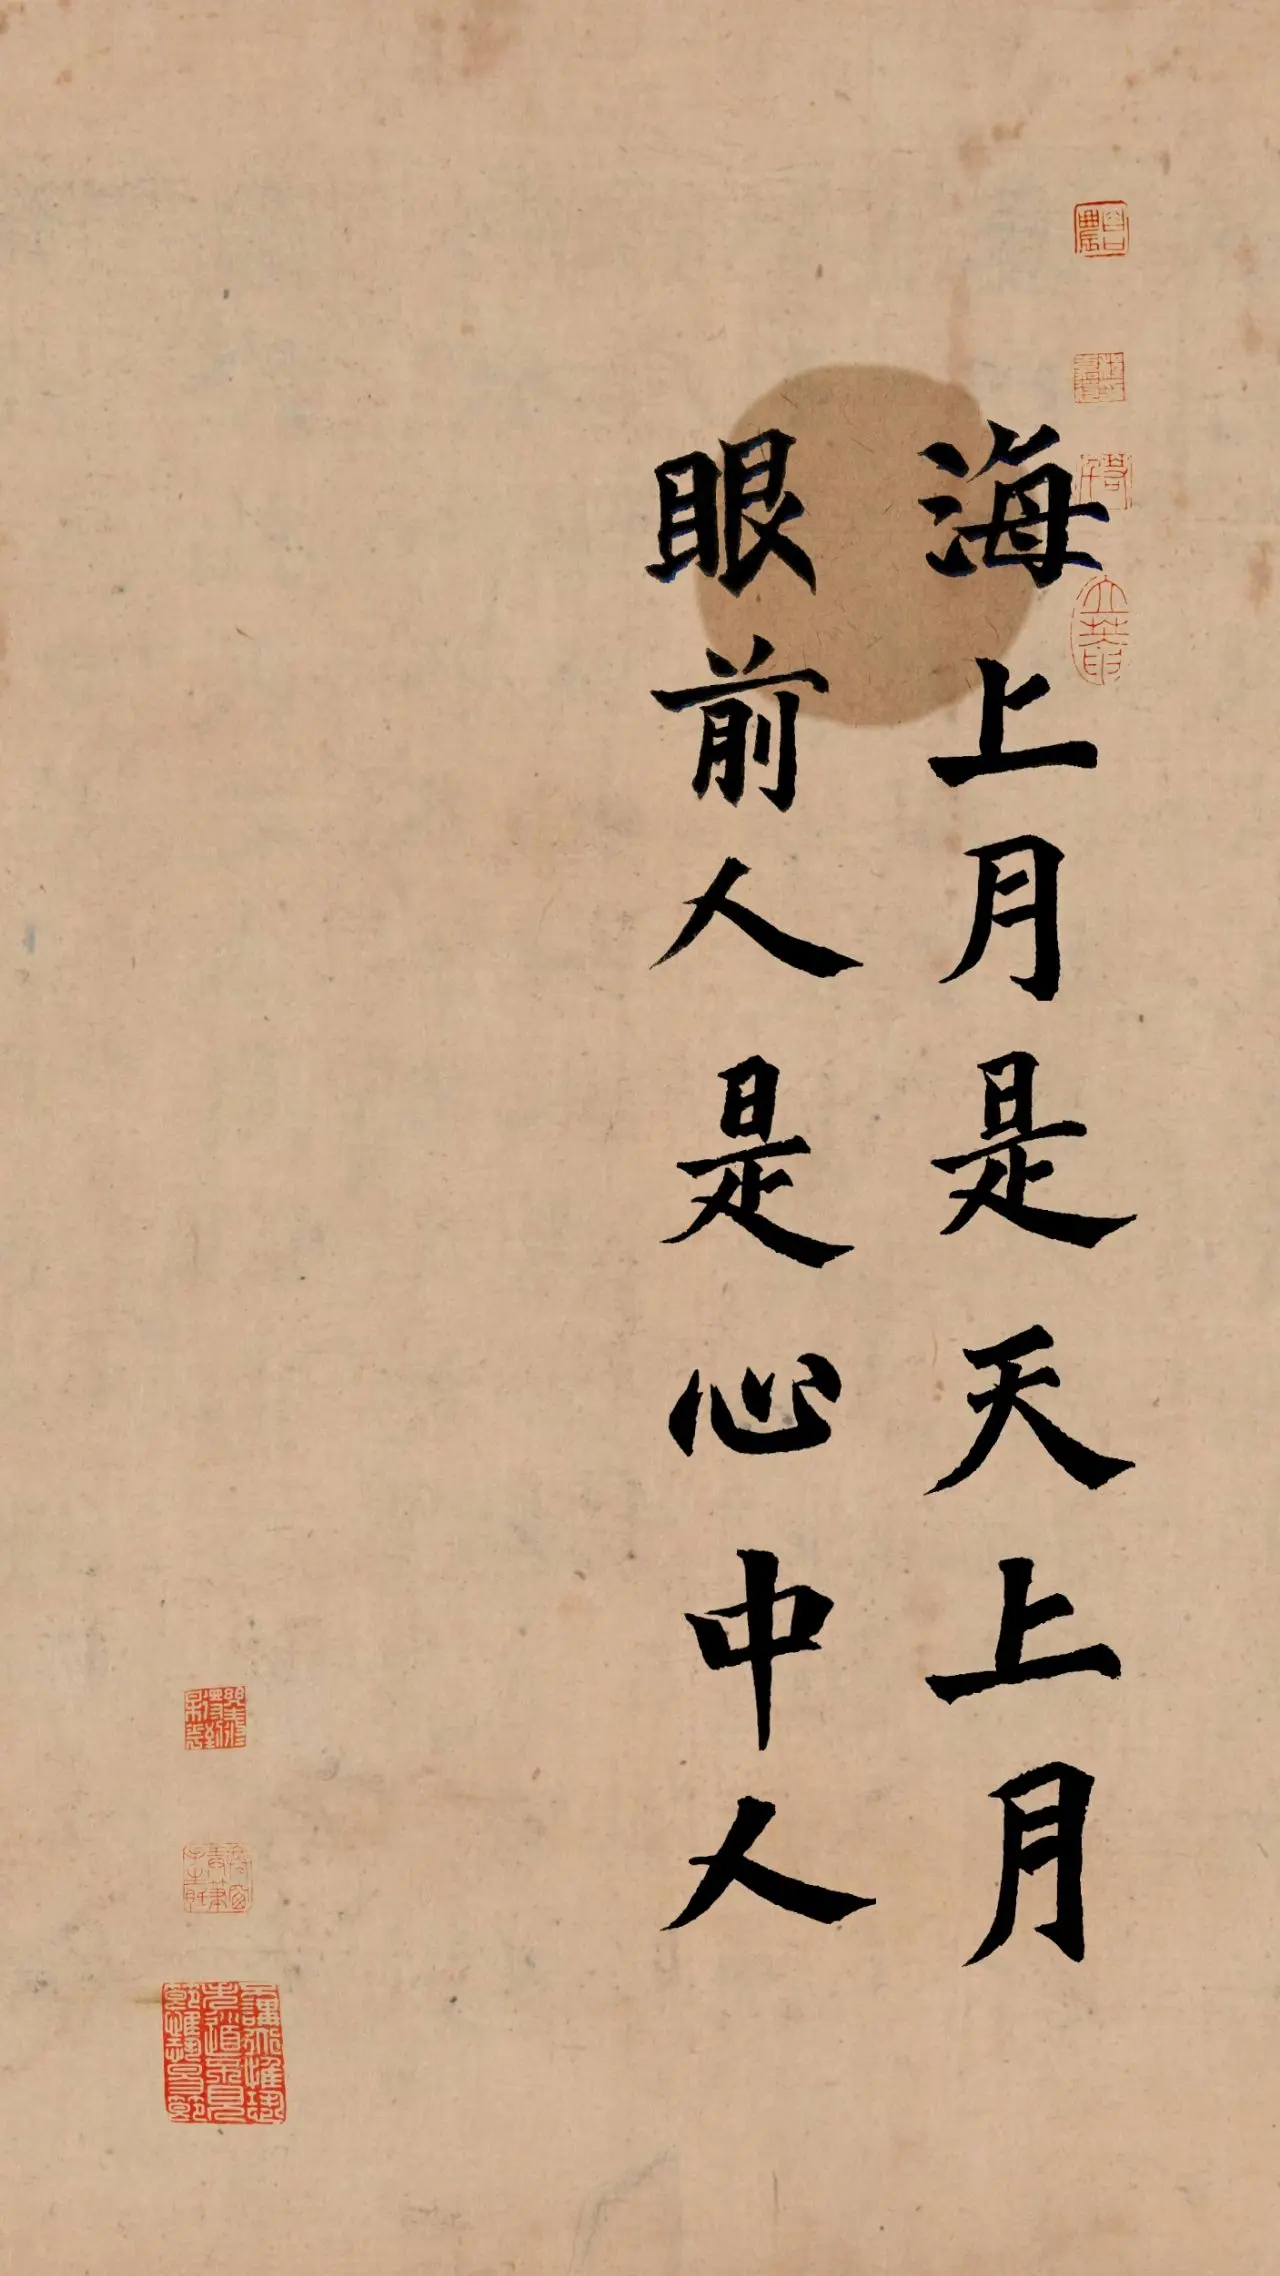 海上月是天上月
眼前人是心中人